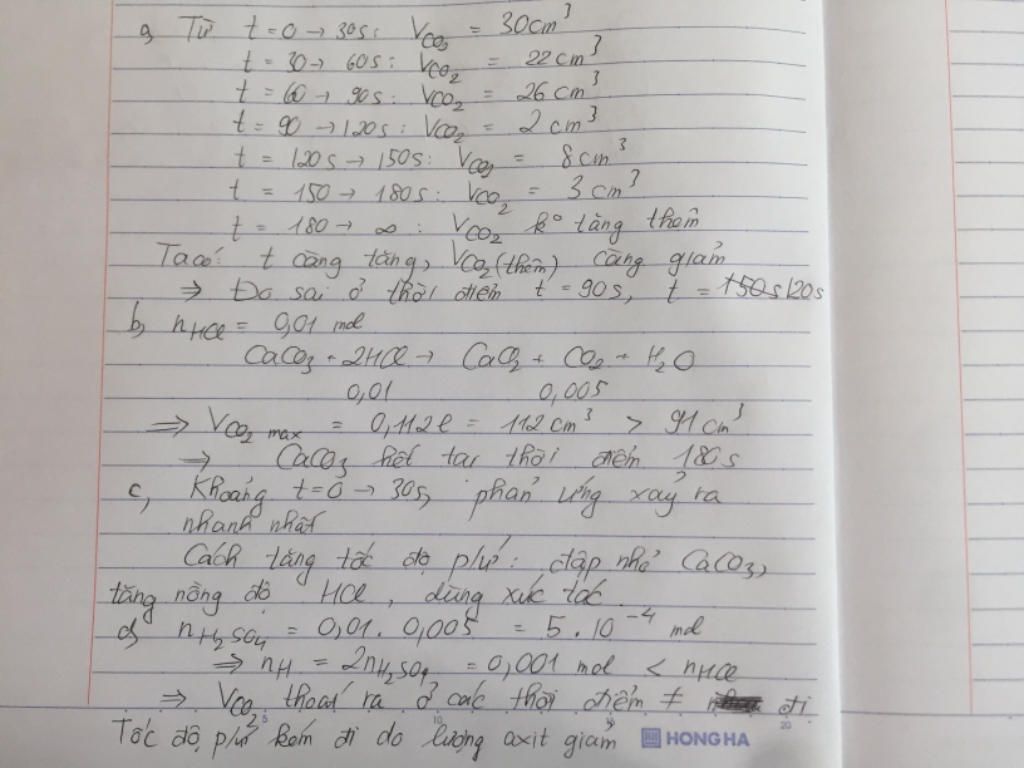 a, Từ t = 0 → 30s: VCO2 = 30cm³
t = 30 → 60s: VCO2 = 22cm³
t = 60 → 90s: VCO2 = 26cm³
t = 90 → 120s: VCO2 = 2cm³
t = 120s → 150s: VCO2 = 8cm³
t = 150 → 180s: VCO2 = 3cm³
t = 180 → ∞: VCO2 k° tăng thêm
Ta có: t càng tăng, VCO2(thêm) càng giảm
⇒ Đo sai ở thời điểm t = 90s, t = 150s 120s
b, nHCl = 0,01 mol
CaCO3 + 2HCl → CaCl2 + CO2 + H2O
0,01 0,005
⇒ VCO2 max = 0,112l = 112cm³ > 91cm³
⇒ CaCO3 hết tại thời điểm 180s
c, Khoảng t=0 → 30s, phản ứng xảy ra
nhanh nhất
Cách tăng tốc độ p/ư: đập nhỏ CaCO3,
tăng nồng độ HCl, dùng xúc tác
d, nH2SO4 = 0,01. 0,005 = 5.10⁻⁴ mol
⇒ nH = 2nH2SO4 = 0,001 mol < nHCl
⇒ VCO2 thoát ra ở các thời điểm ≠ đi
Tốc độ p/ư kém đi do lượng axit giảm
5 10 15 20
HONG HA